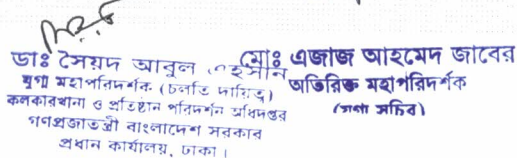 ডাঃ সৈয়দ আবুল এহসান
যুগ্ম মহাপরিদর্শক (চলতি দায়িত্ব)
কলকারখানা ও প্রতিষ্ঠান পরিদর্শন অধিদপ্তর
গণপ্রজাতন্ত্রী বাংলাদেশ সরকার
প্রধান কার্যালয়, ঢাকা।
মোঃ এজাজ আহমেদ জাবের
অতিরিক্ত মহাপরিদর্শক
(যুগ্ম সচিব)